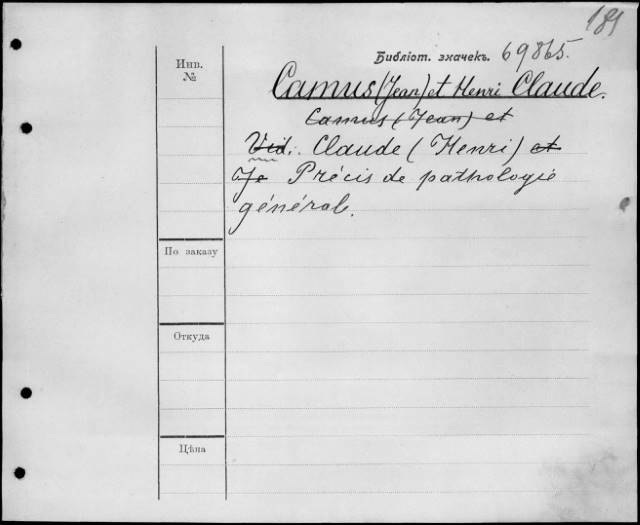 181
Библіот. значекъ. 69865.
Инв.
№
Camus (Jean) et Henri Claude.
Camus (Jean) et
Vid. Claude (Henri) et
Précis de pathologie
générale.
По заказу
Откуда
Цѣна